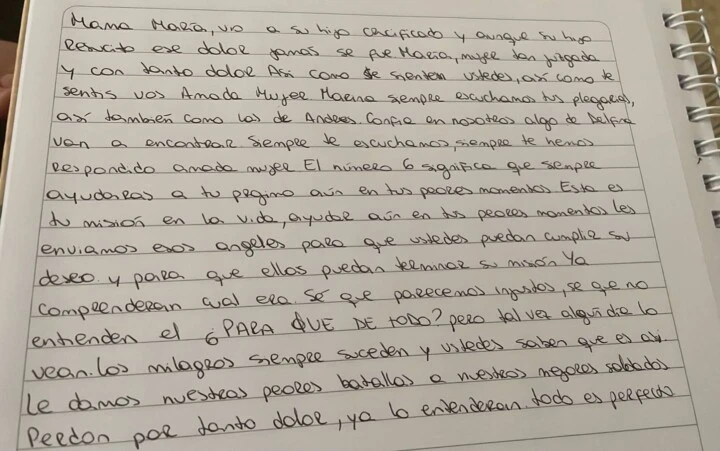 Mama Maria, vio a su hijo crucificado y aunque su hijo
Resucito ese dolor jamas se fue Maria, mujer tan juzgada
y con tanto dolor Asi como se sienten ustedes, asi como te
sentis vos Amada Mujer Marina siempre escuchamos tus plegarias,
asi tambien como las de Anderes. Confia en nosotros algo de Delfina
van a encontrar siempre te escuchamos, siempre te hemos
Respondido amada mujer El número 6 significa que siempre
ayudaras a tu progimo aún en tus peores momentos Esta es
tu misión en la vida, ayudar aún en tus peores momentos les
enviamos esos angeles para que ustedes puedan cumplir su
deseo y para que ellos puedan terminar su misión Ya
comprenderan cual era. Sé que parecemos injustos, se que no
entienden el ¿PARA QUE DE TODO? pero tal vez algún dia lo
vean. Los milagros siempre suceden y ustedes saben que es asi
Le damos nuestras peores batallas a nuestros mejores soldados
Perdon por tanto dolor, ya lo entenderan todo es perfecto